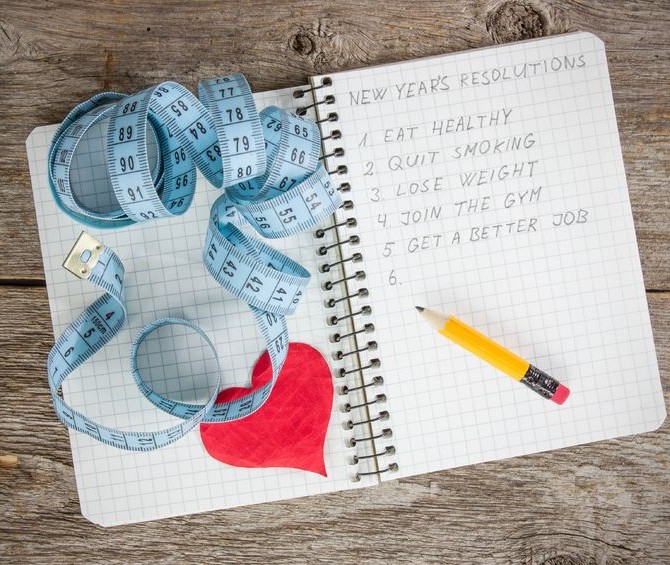 NEW YEAR'S RESOLUTIONS
1. EAT HEALTHY
2. QUIT SMOKING
3. LOSE WEIGHT
4. JOIN THE GYM
5 GET A BETTER JOB
6.
88
89
90
91
92
85
84
83
95
94
77
78
79
80
65
66
53
54
55
56
44
43
42
41
4
5
6
150cm